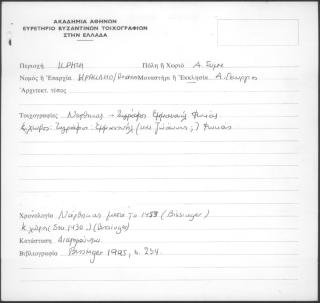 ΑΚΑΔΗΜΙΑ ΑΘΗΝΩΝ
ΕΥΡΕΤΗΡΙΟ ΒΥΖΑΝΤΙΝΩΝ ΤΟΙΧΟΓΡΑΦΙΩΝ
ΣΤΗΝ ΕΛΛΑΔΑ
Περιοχή ΚΡΗΤΗ Πόλη ἤ Χωριό Α. Σύμη
Νομός ἤ Ἐπαρχία ΗΡΑΚΛΕΙΟ/ Μοναστήρι ἤ Ἐκκλησία Α. Γεώργιος
Ἀρχιτεκτ. τύπος
Τοιχογραφίες Νάρθηκας → Ζωγράφος Εμμανουήλ Φωκάς
Κ. χώρος: Ζωγράφοι: Εμμανουήλ (και Ιωάννης;) Φωκάς
Χρονολογία Νάρθηκας μετά το 1453 (Bissinger)
Κ. χώρος (δεκ. 1430) (Bissinger)
Κατάσταση Διατηρούνται
Βιβλιογραφία Bissinger 1995, σ. 234.